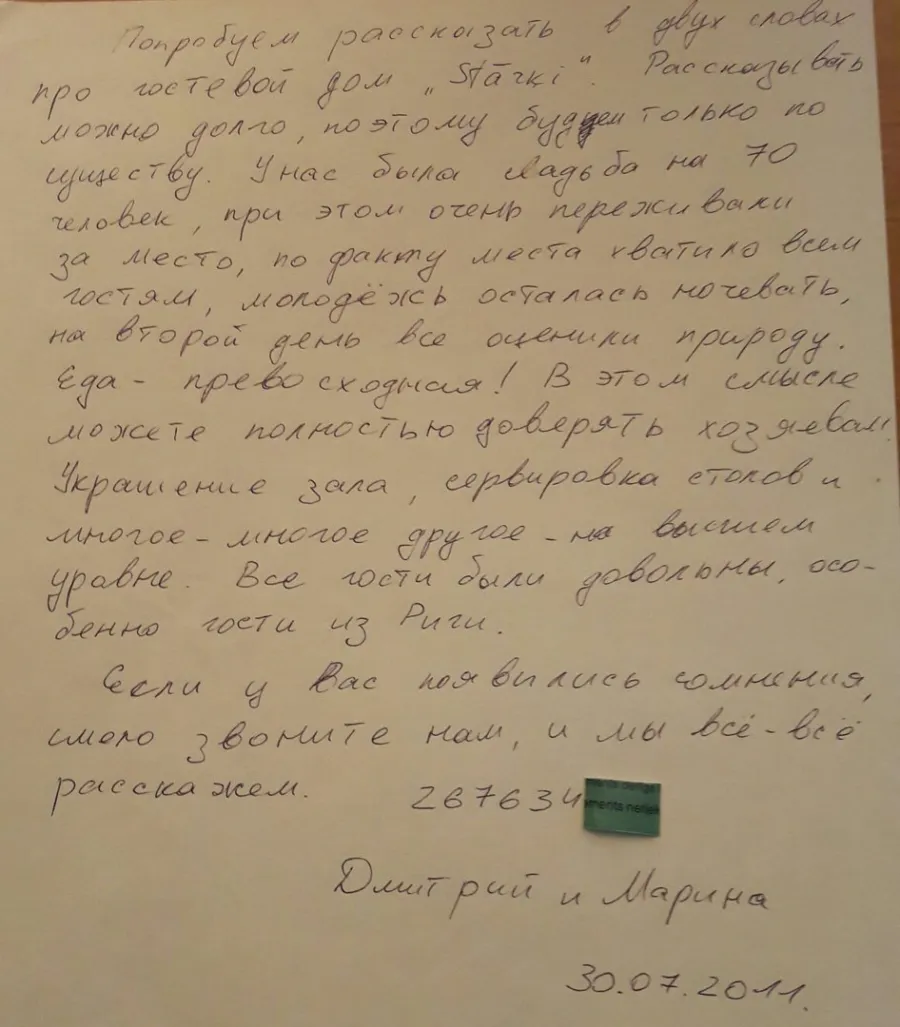 Попробуем рассказать в двух словах
про гостевой дом „Stārķi". Рассказывать
можно долго, поэтому будем только по
существу. У нас была свадьба на 70
человек, при этом очень переживали
за место, по факту места хватило всем
гостям, молодёжь осталась ночевать,
на второй день все оценили природу.
Еда - превосходная! В этом смысле
можете полностью доверять хозяевам.
Украшение зала, сервировка столов и
многое-многое другое - на высшем
уравне. Все гости были довольны, осо-
бенно гости из Риги.
Если у Вас появились сомнения,
смело звоните нам, и мы всё-всё
расскажем. 267634
Дмитрий и Марина
30.07.2011.